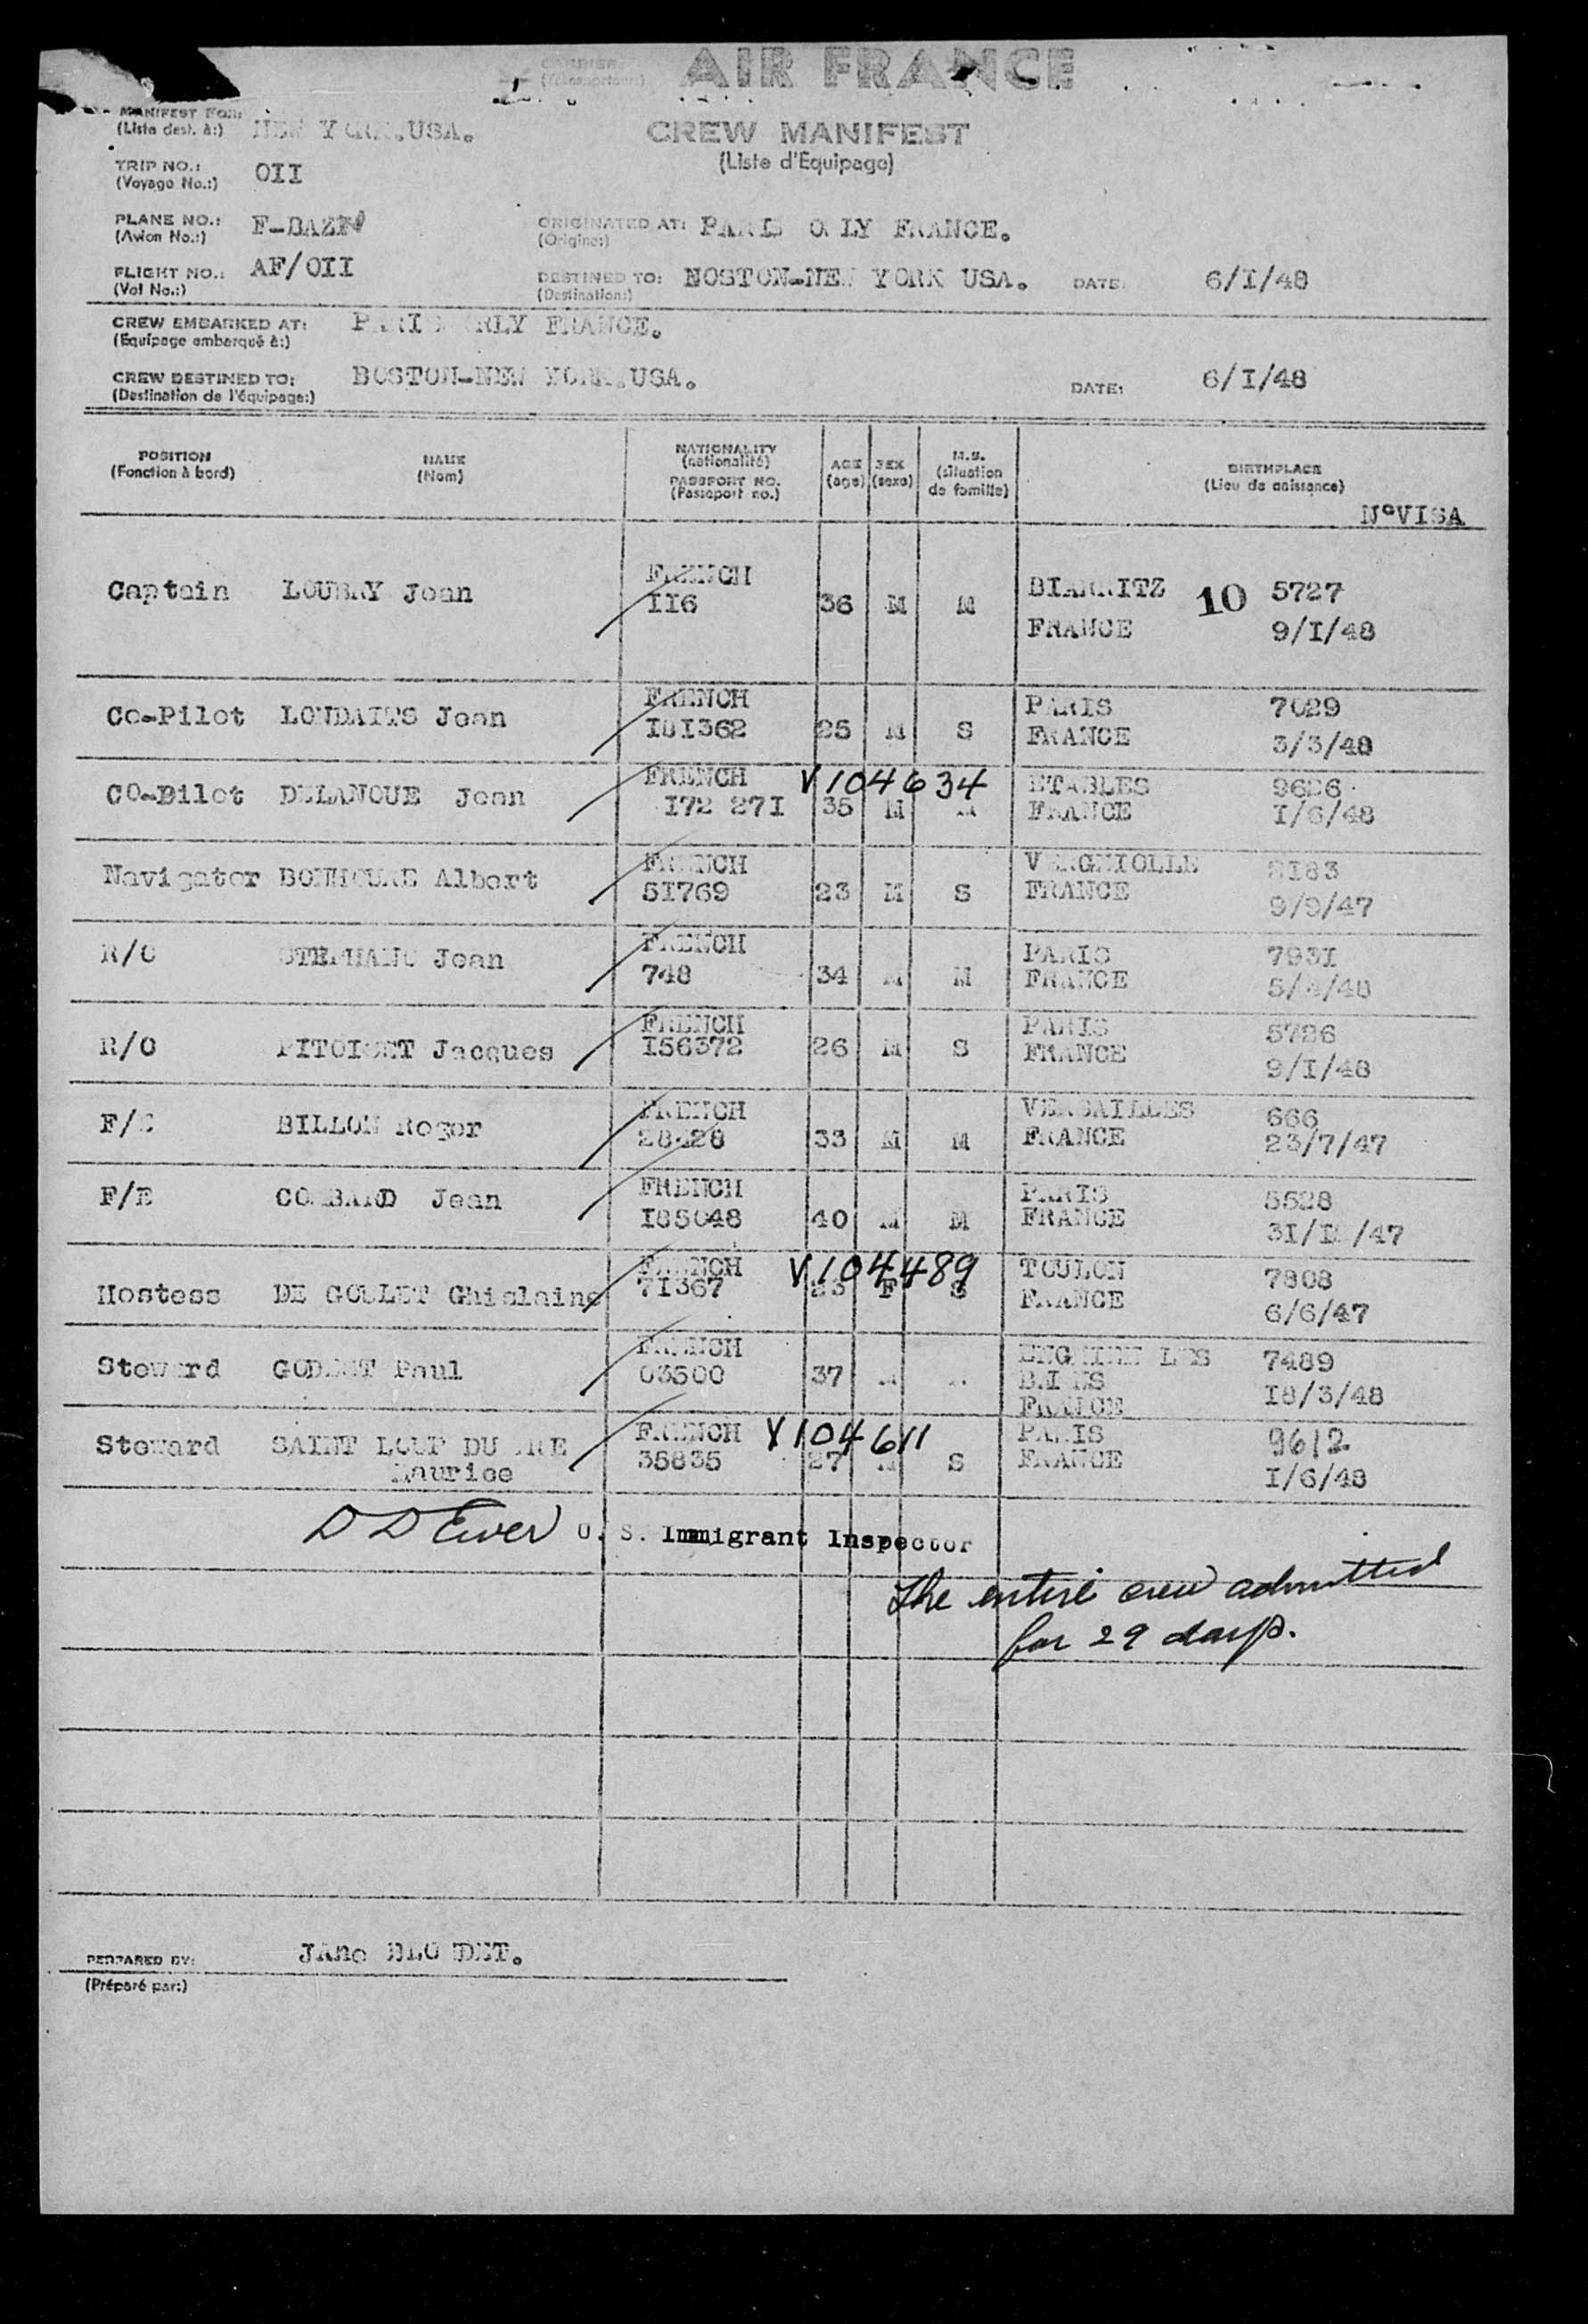 CARRIER:
(Transporteur:)
AIR FRANCE
MANIFEST FOR:
(Liste dest. à:) NEW YORK.USA.
CREW MANIFEST
(Liste d'Equipage)
TRIP NO.:
(Voyage No.:) OII
PLANE NO.:
(Avion No.:) F-BAZN
ORIGINATED AT: PARIS O LY FRANCE.
(Origine:)
FLIGHT NO.: AF/OII
(Vol No.:)
DESTINED TO: BOSTON-NEW YORK USA. DATE: 6/I/48
(Destination:)
CREW EMBARKED AT: PARIS ORLY FRANCE.
(Equipage embarqué à:)
CREW DESTINED TO: BOSTON-NEW YORK.USA. DATE: 6/I/48
(Destination de l'équipage:)
POSITION
(Fonction à bord)
NAME
(Nom)
NATIONALITY
(nationalité)
PASSPORT NO.
(Passeport no.)
AGE
(age)
SEX
(sexe)
M.S.
(situation
de famille)
BIRTHPLACE
(Lieu de naissance)
N°VISA
FRENCH
Captain Jean II6 36 M M BIARRITZ 10 5727
FRANCE 9/I/48
FRENCH PARIS 7029
Co-Pilot LONDAITS Jean 25 M S FRANCE 3/3/48
FRENCH V104634 ETABLES
CO-Pilot DELANOUE Jean I72 27I 35 M M FRANCE I/6/48
FRENCH
Navigator Albert 5I769 23 M S FRANCE 9/9/47
FRENCH PARIS 793I
R/O STEPHANO Jean 748 34 M M FRANCE 5/4/48
FRENCH PARIS 5726
R/O PITOISET Jacques I56372 26 M S FRANCE 9/I/48
FRENCH VERSAILLES 666
F/E BILLON Roger 33 M M FRANCE 23/7/47
FRENCH PARIS 5528
F/E COMBARD Jean I85048 40 M M FRANCE /47
FRENCH V104489 TOULON 7808
Hostess DE GOULET Ghislaine 7I367 23 F S FRANCE 6/6/47
FRENCH ENGHIEN LES 7489
Steward GODEST Paul 03500 37 BAINS I8/3/48
FRANCE
FRENCH V104611 PARIS 9612
Steward SAINT LOUP DU 35835 27 M S FRANCE I/6/48
Maurice
D D Ewer U. S. Immigrant Inspector
The entire crew admitted
for 29 days.
PREPARED BY: JAne
(Préparé par:)